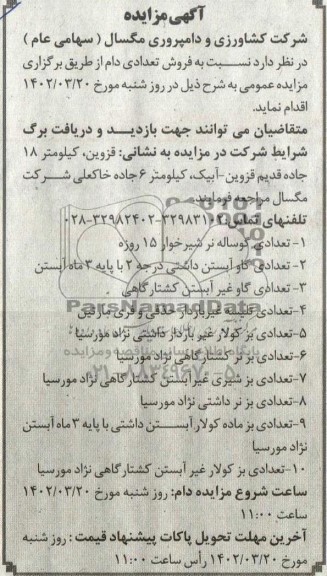 آگهی مزایده
شرکت کشاورزی و دامپروری مگسال ( سهامی عام )
در نظر دارد نسبت به فروش تعدادی دام از طریق برگزاری
مزایده عمومی به شرح ذیل در روز شنبه مورخ ۱۴۰۲/۰۳/۲۰
اقدام نماید.
متقاضیان می توانند جهت بازدید و دریافت برگ
شرایط شرکت در مزایده به نشانی: قزوین، کیلومتر ۱۸
جاده قدیم قزوین-آبیک، کیلومتر ۶ جاده خاکعلی شرکت
مگسال مراجعه فرمایند.
تلفنهای تماس: ۳۲۹۸۳۱۰۲-۳۲۹۸۲۴۰۲-۰۲۸
۱- تعدادی گوساله نر شیرخوار ۱۵ روزه
۲- تعدادی گاو آبستن داشتی درجه ۲ با پایه ۳ ماه آبستن
۳- تعدادی گاو غیر آبستن کشتارگاهی
۴-تعدادی تلیسه غیرباردار حذفی و فری مارتین
۵-تعدادی بز کولار غیر باردار داشتی نژاد مورسیا
۶-تعدادی بز نر کشتارگاهی نژاد مورسیا
۷-تعدادی بز شیری غیر آبستن کشتارگاهی نژاد مورسیا
۸-تعدادی بز نر داشتی نژاد مورسیا
۹-تعدادی بز ماده کولار آبستن داشتی با پایه ۳ ماه آبستن
نژاد مورسیا
۱۰-تعدادی بز کولار غیر آبستن کشتارگاهی نژاد مورسیا
ساعت شروع مزایده دام: روز شنبه مورخ ۱۴۰۲/۰۳/۲۰
ساعت ۱۱:۰۰
آخرین مهلت تحویل پاکات پیشنهاد قیمت : روز شنبه
مورخ ۱۴۰۲/۰۳/۲۰ رأس ساعت ۱۱:۰۰
ParsNamadData
پایگاه اطلاع رسانی مناقصه و مزایده
۰۲۱-۸۸۳۴۹۶۷۰-۵